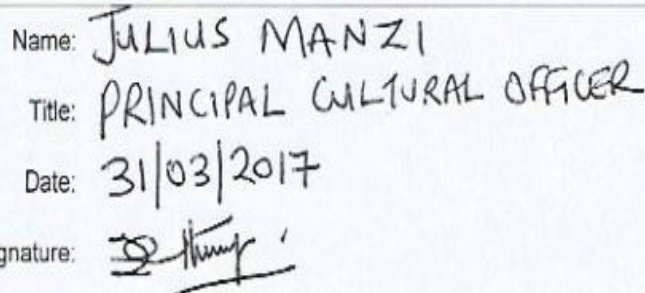 Name: JULIUS MANZI
Title: PRINCIPAL CULTURAL OFFICER
Date: 31/03/2017
gnature: